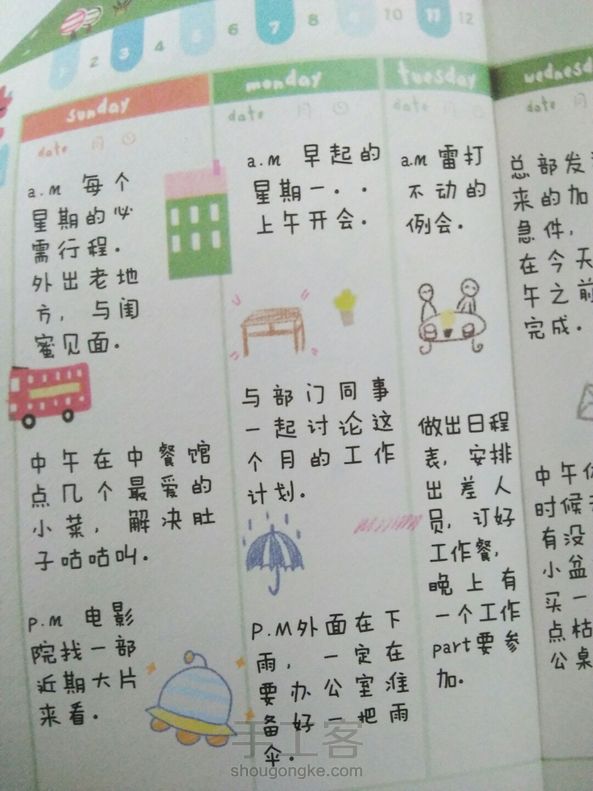 1 2 3 4 5 6 7 8 9 10 11 12
sunday
date 月
a.m 每个
星期的必
需行程.
外出老地
方,与闺
蜜见面.
中午在中餐馆
点几个最爱的
小菜,解决肚
子咕咕叫.
p.m 电影
院找一部
近期大片
来看.
monday
date 月
a.m 早起的
星期一..
上午开会.
与部门同事
一起讨论这
个月的工作
计划.
P.M外面在下
雨,一定在
要办公室准
备好一把雨
伞.
tuesday
date 月
a.m 雷打
不动的
例会.
做出日程
表,安排
出差人
员,订好
工作餐,
晚上有
一个工作
part要参
加.
wednesd
date 月
总部发
来的加
急件,
在今天
午之前
完成.
中午
时候
有没
小盆
买一
点枯
公桌
手工客
shougongke.com